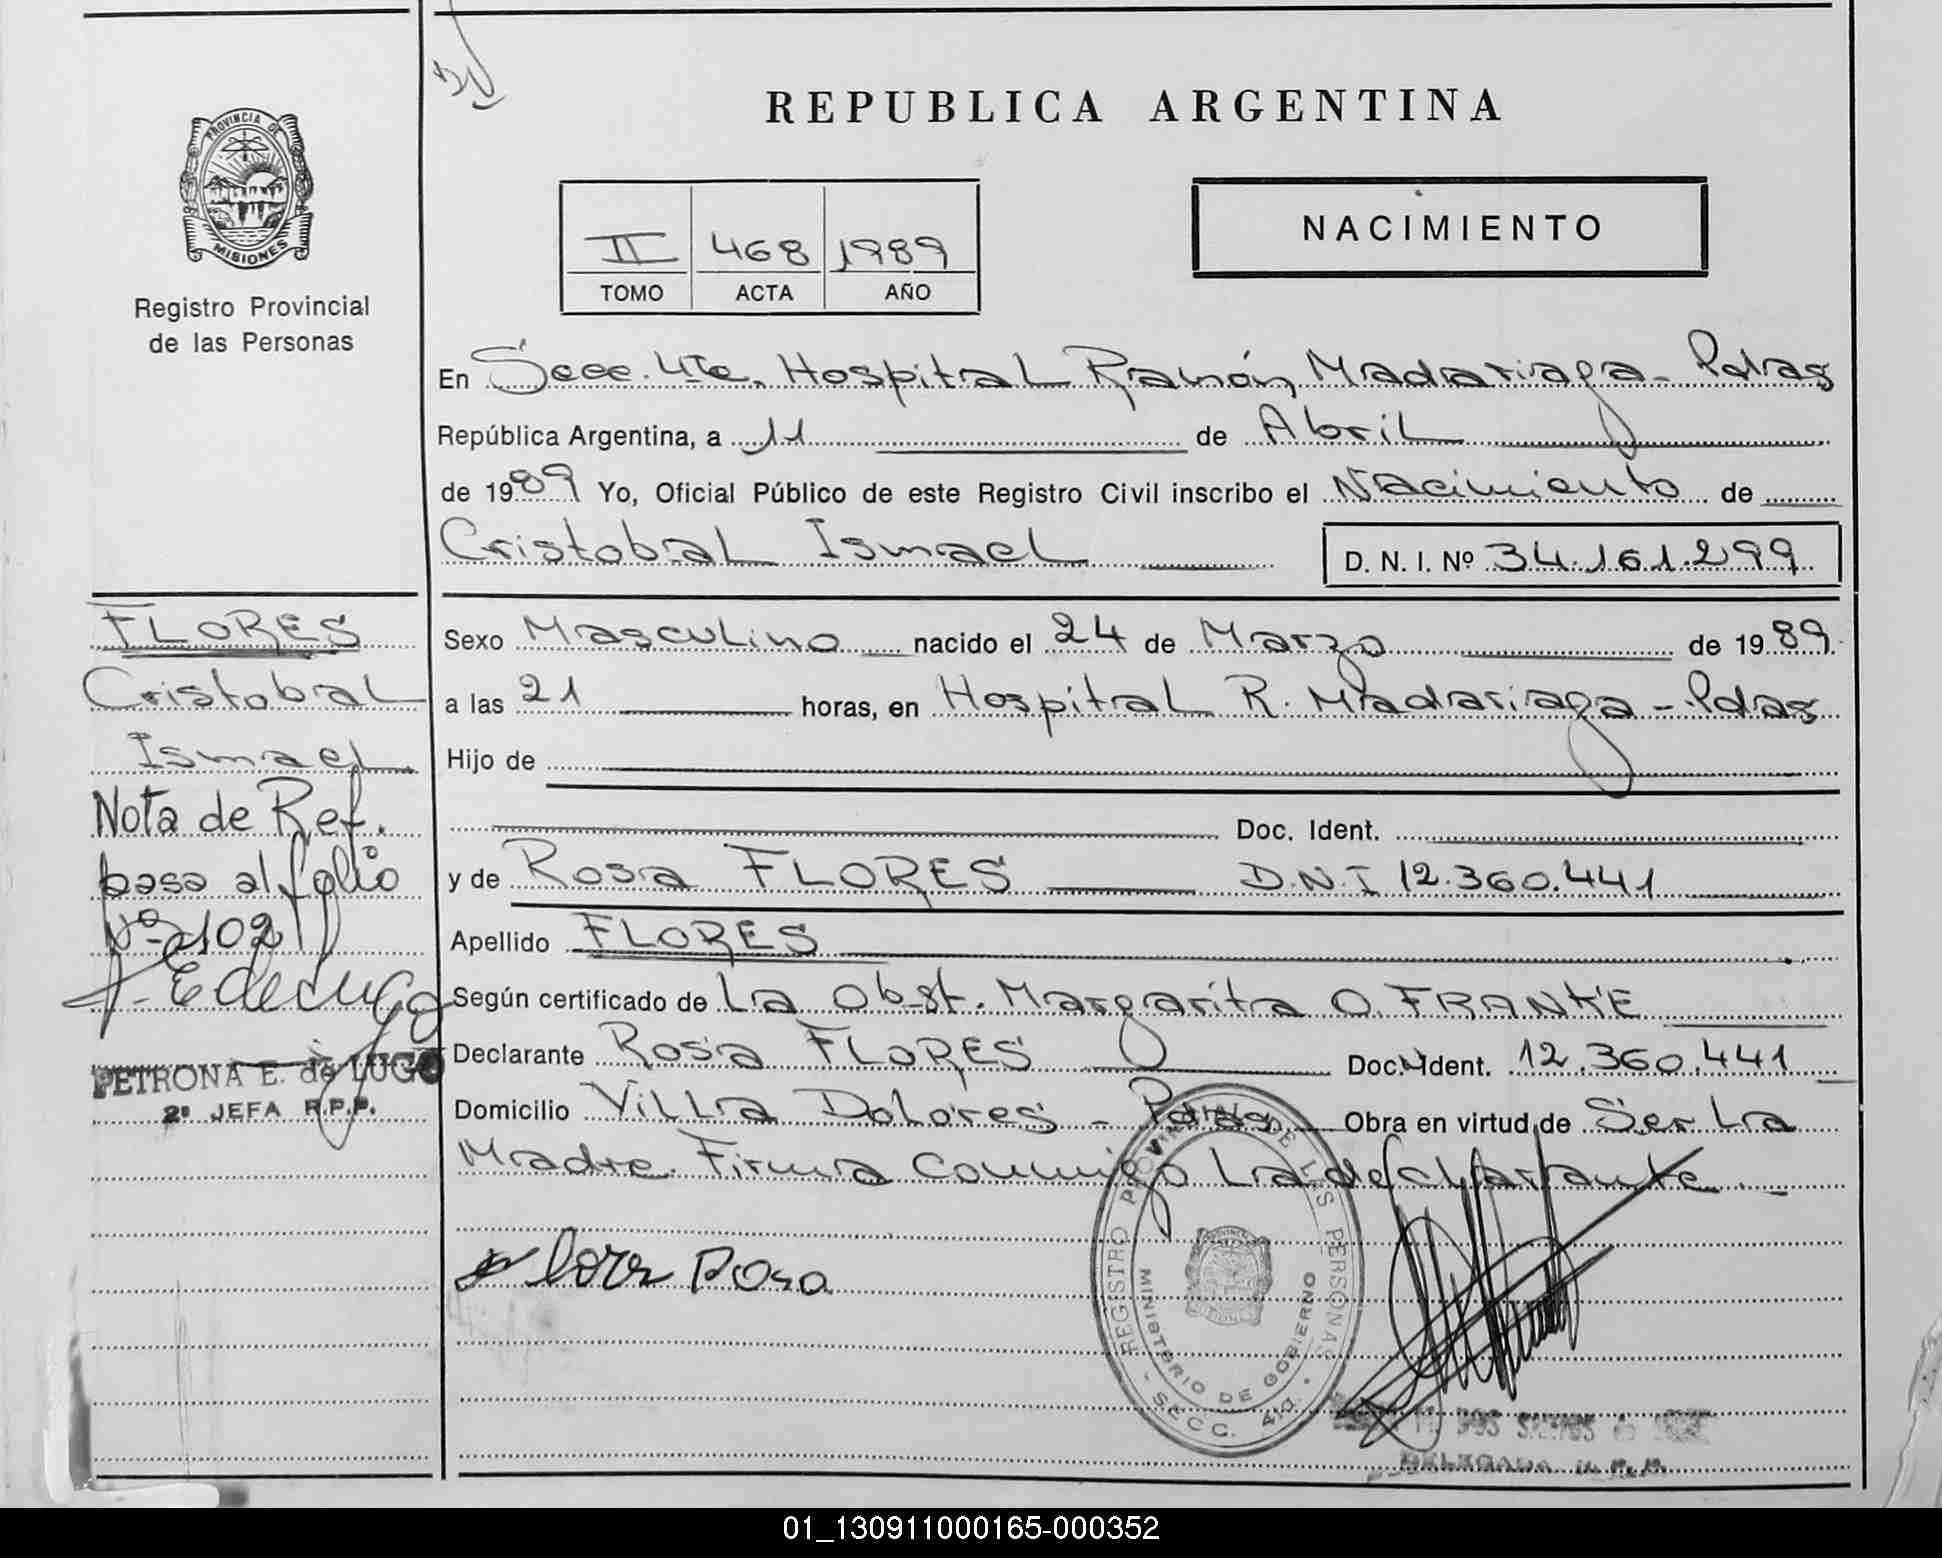 REPUBLICA ARGENTINA
PROVINCIA DE
MISIONES
Registro Provincial
de las Personas
II 468 1989
TOMO ACTA AÑO
NACIMIENTO
En Secc. 4ta. Hospital Ramón Madariaga - Pdas
República Argentina, a 11 de Abril
de 1989 Yo, Oficial Público de este Registro Civil inscribo el Nacimiento de
Cristobal Ismael
D. N. I. Nº 34.161.299
FLORES
Cristobal
Ismael
Nota de Ref.
pasa al folio
Nº 102
PETRONA E. de LUGO
2º JEFA R.P.P.
Sexo Masculino nacido el 24 de Marzo de 1989
a las 21 horas, en Hospital R. Madariaga - Pdas
Hijo de
Doc. Ident.
y de Rosa FLORES D.N.I 12.360.441
Apellido FLORES
Según certificado de La Obst. Margarita O. FRANKE
Declarante Rosa FLORES Doc. Ident. 12.360.441
Domicilio Villa Dolores - Pdas Obra en virtud de Ser La
Madre. Firma Conmigo La declarante.
Flores Rosa
REGISTRO PROVINCIAL DE LAS PERSONAS
MINISTERIO DE GOBIERNO
SECC. 4ta.
DOS SANTOS de
DELEGADA
01_130911000165-000352